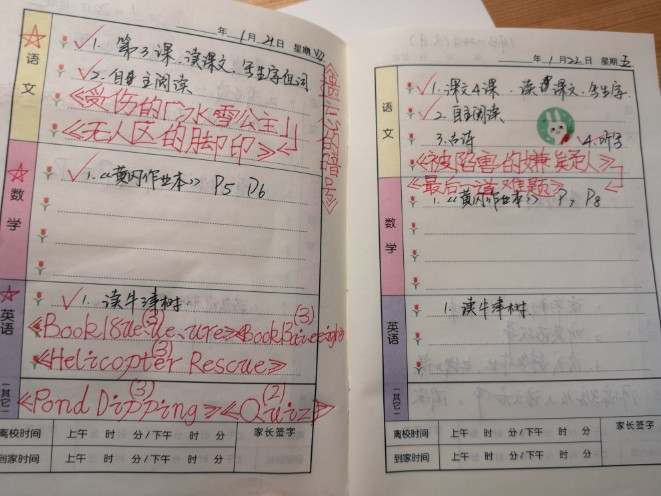 年 1月21日 星期
语文
✓1. 第3课.读课文.写生字组词
✓2.自主阅读
《受伤的「冰雪公主」》
《无人区的脚印》
数学
✓1.《黄冈作业本》 P5 P6
英语
✓1. 读牛津树.
《Helicopter Rescue》(3)
(其它)
《Pond Dipping》(3)《Quiz》(2)
离校时间 上午 时 分/下午 时 分 家长签字
到家时间 上午 时 分/下午 时 分
年 1月22日 星期五
语文
✓1.课文4课.读课文.写生字.
✓2.自主阅读
3.古诗 ✓4.听写
《被陷害的嫌疑人》
《最后一道难题》
数学
1.《黄冈作业本》 P7 P8
英语
1.读牛津树.
(其它)
离校时间 上午 时 分/下午 时 分 家长签字
到家时间 上午 时 分/下午 时 分